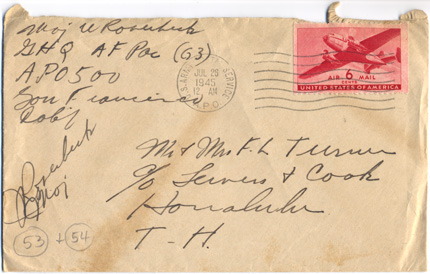 Maj W Rosebeck
GHQ AFPac (G3)
APO 500
San Francisco
Calif
U.S. ARMY POSTAL SERVICE
JUL 29
1945
AM
A.P.O.
AIR 6 MAIL
CENTS
UNITED STATES OF AMERICA
Mr & Mrs F. L. Turner
c/o Lewers & Cook
Honolulu
T-H.
Rosebeck
Maj
53 + 54